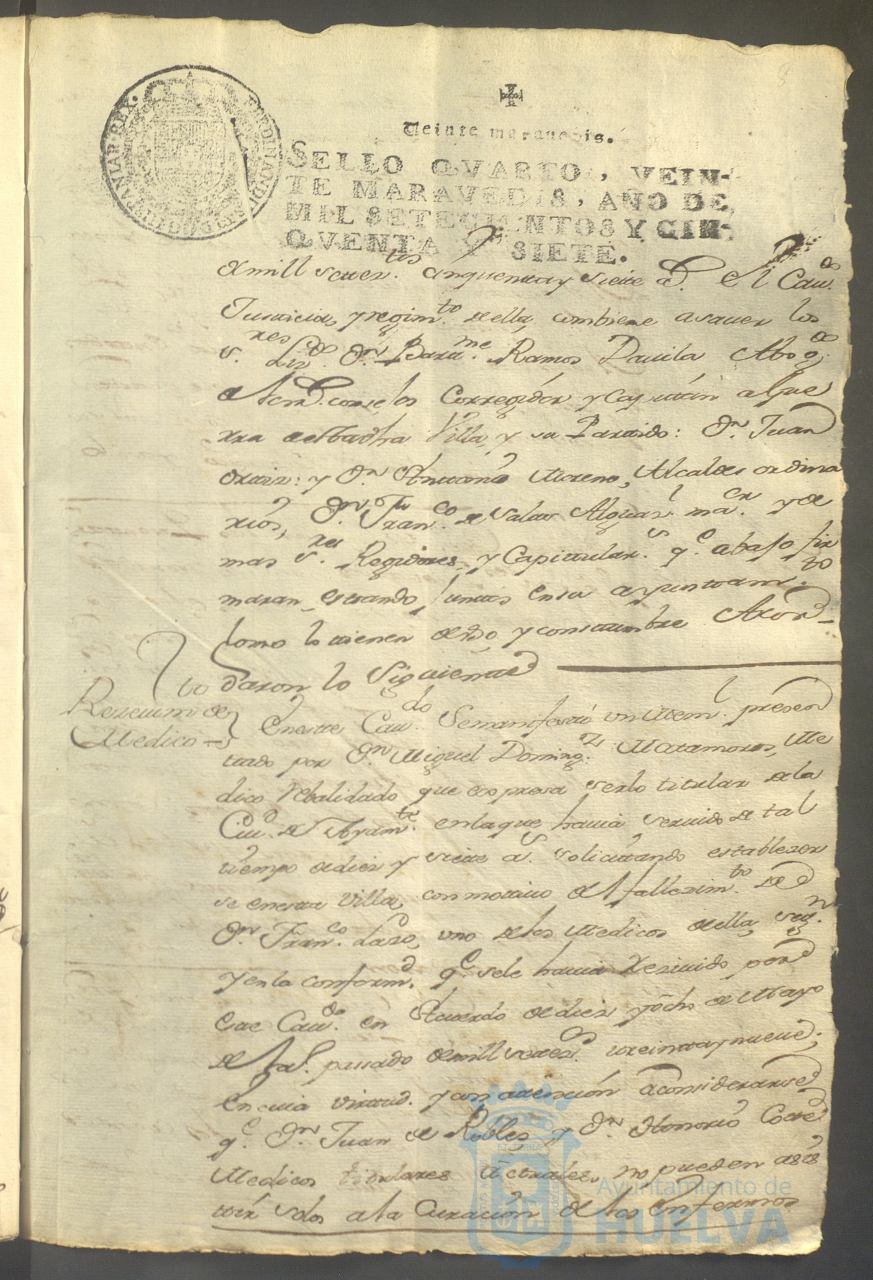 FERDINANDUS VI D G HISPANIAR REX
Veinte maravedis.
SELLO QVARTO, VEIN-
TE MARAVEDIS, AÑO DE
MIL SETECIENTOS Y CIN-
QVENTA Y SIETE.
de mill setez.tos cinquenta y siete a.s El Cav.do
Justicia, y regim.to de ella, combiene a saver los
s.res Liz.do D.n Barm.e Ramos Davila Abog.do
de los R.s consejos Corregidor y Capitan a Gue
rra de esta dha Villa, y su Partido: D.n Juan
Ortiz: y D.n Antonio Moreno, Alcaldes ordina
rios, D.n Fran.co de Salas Alguas.l ma.or y de
mas s.res Regidores, y Capitular.s q.e abajo fir
maran, estando juntos en su ayuntam.to
como lo tienen de uso y constumbre Acor-
daron lo Siguiente
Rezevim.to de
Medico
En este Cav.do Se manifestó un Mem.l presen
tado por D.n Miguel Doming.z Matamoros, Me
dico rebalidado que expresa serlo titular de la
Ciu.d de Ayam.te en la que havia servido de tal
tiempo de diez y siete a.s solicitando establezer
se en esta villa, con motivo del fallezim.to de
D.n Fran.co Lazo, uno de los Medicos de ella, seg.n
y en la conform.d q.e se le havia rezivido por
este Cav.do en Acuerdo de diez y ocho de Mayo
del pasado de mill setez.s treinta y nueve;
En cuia virtud y con atención a considerarse
q.e D.n Juan de Robles, y D.n Honorio
Medicos titulares Actuales, no pueden asis
tir solos a la Curación de los enfermos
Ayuntamiento de
HUELVA